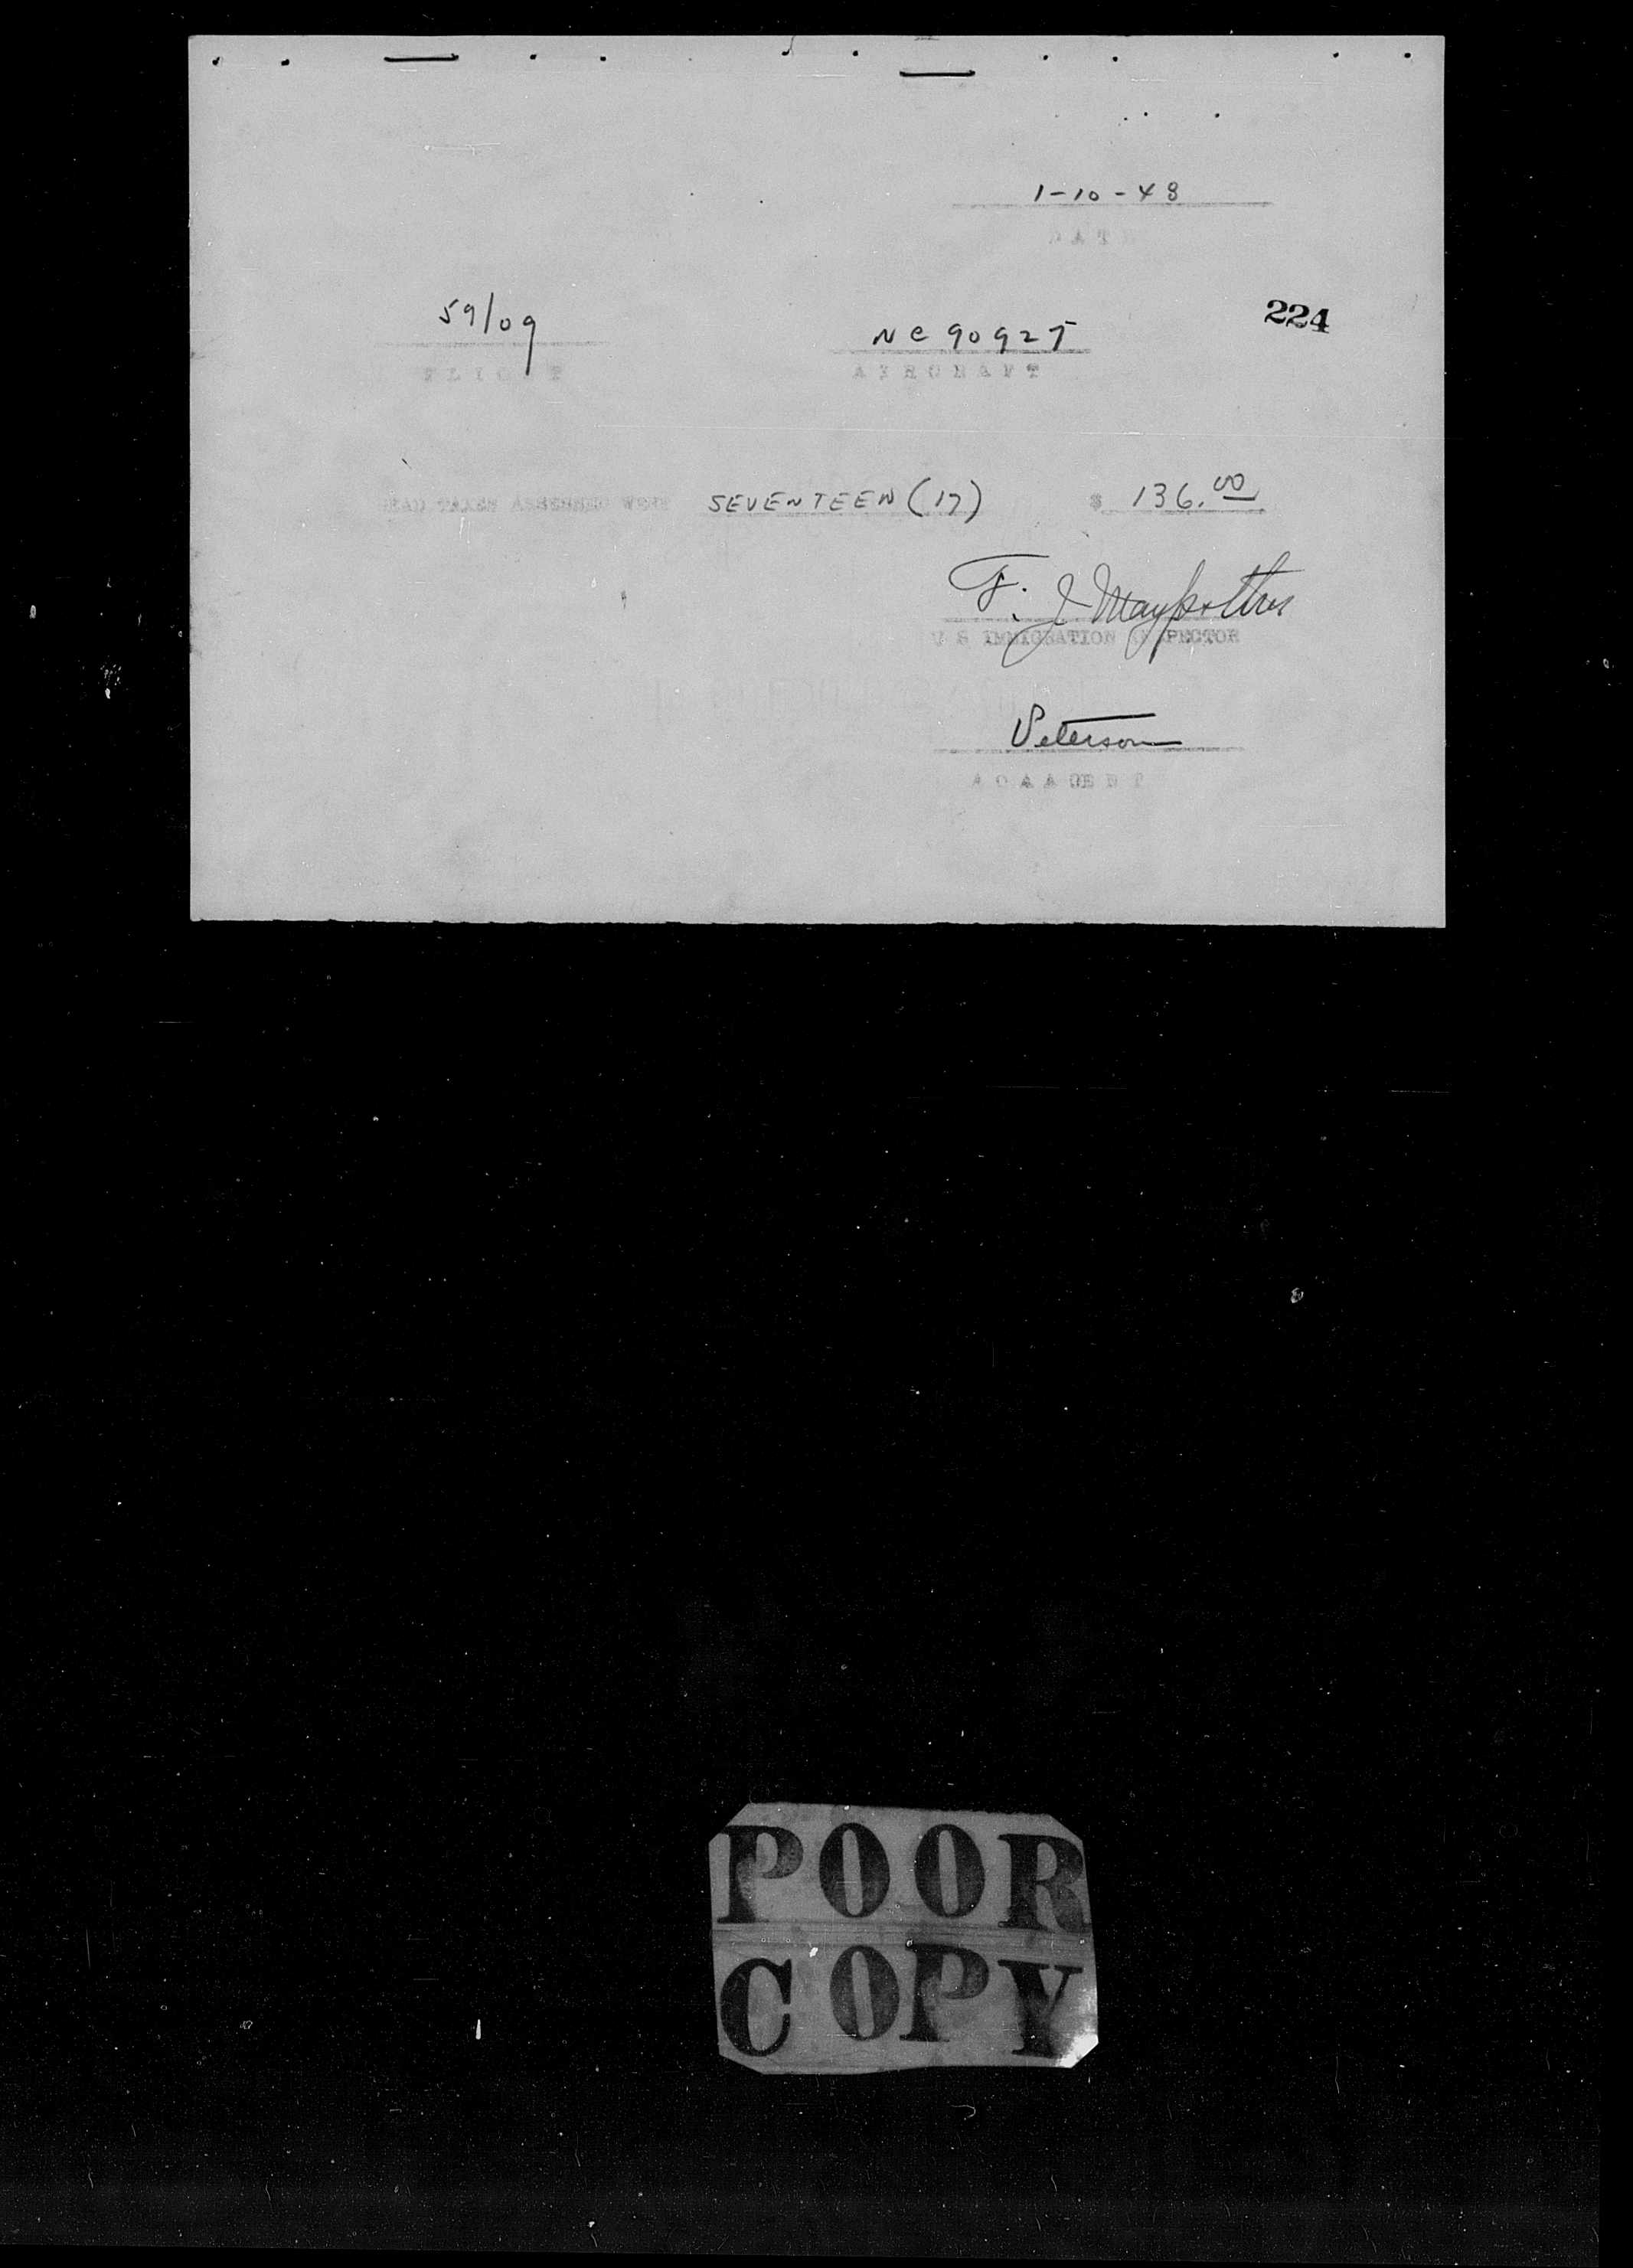 1-10-48
DATE
224
59/09
NC 90925
FLIGHT
AIRCRAFT
HEAD TAXES ASSESSED WERE SEVENTEEN (17) $ 136.00
F. J.
U S IMMIGRATION INSPECTOR
Peterson
A O A AGENT
POOR
COPY